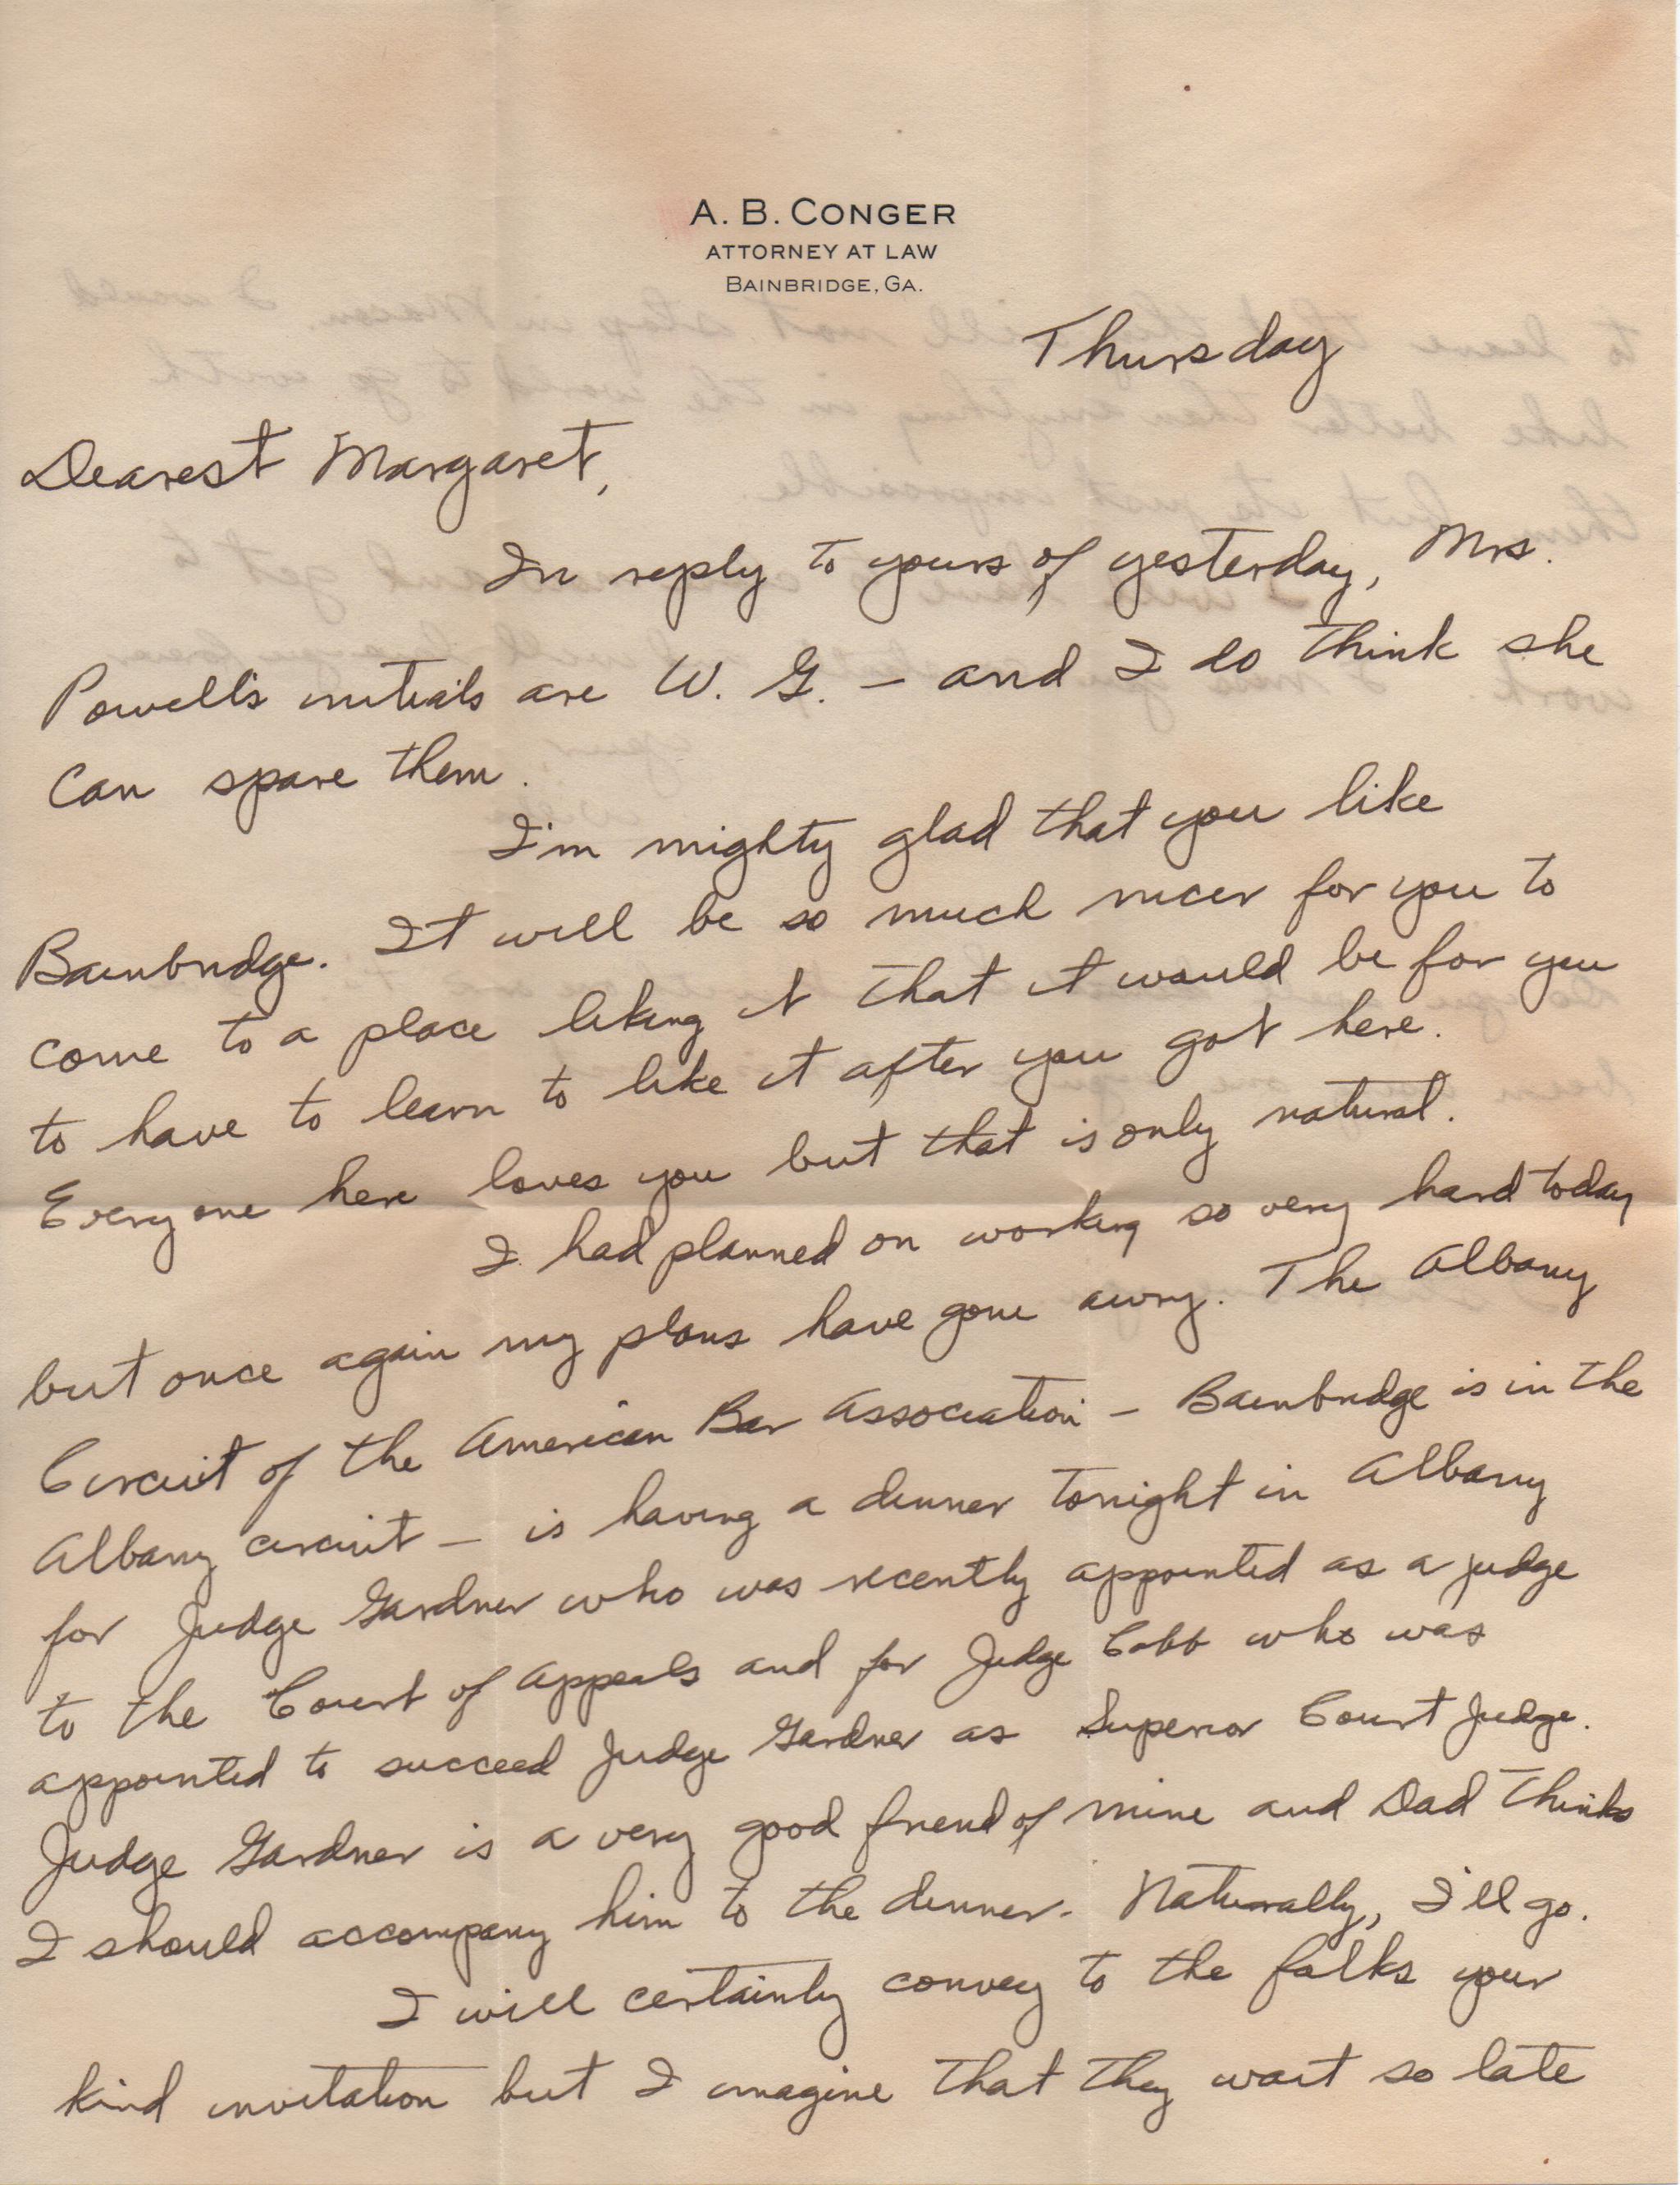 A. B. CONGER
ATTORNEY AT LAW
BAINBRIDGE, GA.
Thursday
Dearest Margaret,
In reply to yours of yesterday, Mrs.
Powell's initials are W. G. – and I do think she
can spare them.
I'm mighty glad that you like
Bainbridge. It will be so much nicer for you to
come to a place liking it that it would be for you
to have to learn to like it after you got here.
Everyone here loves you but that is only natural.
I had planned on working so very hard today
but once again my plans have gone awry. The Albany
Circuit of the American Bar Association – Bainbridge is in the
Albany circuit – is having a dinner tonight in Albany
for Judge Gardner who was recently appointed as a judge
to the Court of Appeals and for Judge Cobb who was
appointed to succeed Judge Gardner as Superior Court Judge.
Judge Gardner is a very good friend of mine and Dad thinks
I should accompany him to the dinner. Naturally, I'll go.
I will certainly convey to the folks your
kind invitation but I imagine that they wait so late